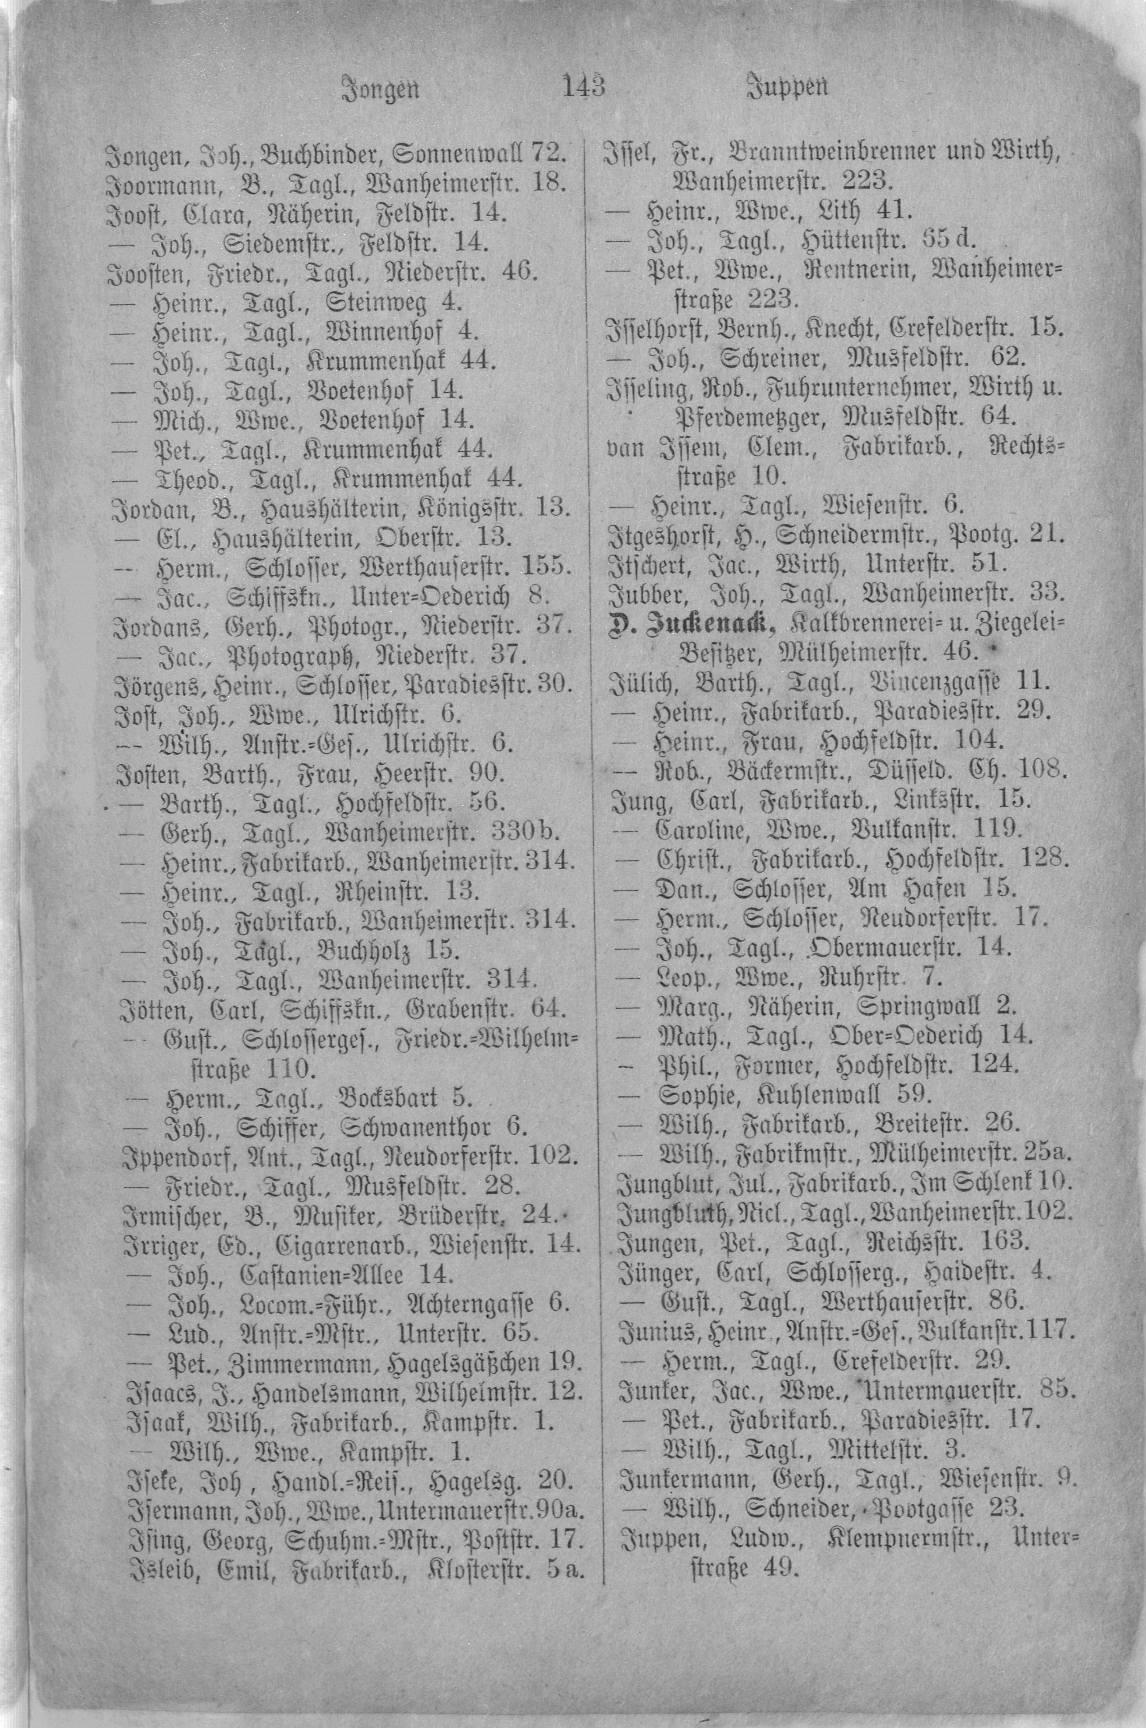 Jongen 143 Juppen
Jongen, Joh., Buchbinder, Sonnenwall 72.
Joormann, B., Tagl., Wanheimerstr. 18.
Joost, Clara, Näherin, Feldstr. 14.
— Joh., Siedemstr., Feldstr. 14.
Joosten, Friedr., Tagl., Niederstr. 46.
— Heinr., Tagl., Steinweg 4.
— Heinr., Tagl., Winnenhof 4.
— Joh., Tagl., Krummenhak 44.
— Joh., Tagl., Voetenhof 14.
— Mich., Wwe., Voetenhof 14.
— Pet., Tagl., Krummenhak 44.
— Theod., Tagl., Krummenhak 44.
Jordan, B., Haushälterin, Königsstr. 13.
— El., Haushälterin, Oberstr. 13.
— Herm., Schlosser, Werthauserstr. 155.
— Jac., Schiffskn., Unter-Oederich 8.
Jordans, Gerh., Photogr., Niederstr. 37.
— Jac., Photograph, Niederstr. 37.
Jörgens, Heinr., Schlosser, Paradiesstr. 30.
Jost, Joh., Wwe., Ulrichstr. 6.
— Wilh., Anstr.-Ges., Ulrichstr. 6.
Josten, Barth., Frau, Heerstr. 90.
— Barth., Tagl., Hochfeldstr. 56.
— Gerh., Tagl., Wanheimerstr. 330b.
— Heinr., Fabrikarb., Wanheimerstr. 314.
— Heinr., Tagl., Rheinstr. 13.
— Joh., Fabrikarb., Wanheimerstr. 314.
— Joh., Tagl., Buchholz 15.
— Joh., Tagl., Wanheimerstr. 314.
Jötten, Carl, Schiffskn., Grabenstr. 64.
— Gust., Schlosserges., Friedr.-Wilhelm-
straße 110.
— Herm., Tagl., Bocksbart 5.
— Joh., Schiffer, Schwanenthor 6.
Ippendorf, Ant., Tagl., Neudorferstr. 102.
— Friedr., Tagl., Musfeldstr. 28.
Irmischer, B., Musiker, Brüderstr. 24.
Irriger, Ed., Cigarrenarb., Wiesenstr. 14.
— Joh., Castanien-Allee 14.
— Joh., Locom.-Führ., Achterngasse 6.
— Lud., Anstr.-Mstr., Unterstr. 65.
— Pet., Zimmermann, Hagelsgäßchen 19.
Isaacs, J., Handelsmann, Wilhelmstr. 12.
Isaak, Wilh., Fabrikarb., Kampstr. 1.
— Wilh., Wwe., Kampstr. 1.
Iseke, Joh., Handl.-Reis., Hagelsg. 20.
Isermann, Joh., Wwe., Untermauerstr. 90a.
Ising, Georg, Schuhm.-Mstr., Poststr. 17.
Isleib, Emil, Fabrikarb., Klosterstr. 5a.
Issel, Fr., Branntweinbrenner und Wirth,
Wanheimerstr. 223.
— Heinr., Wwe., Lith 41.
— Joh., Tagl., Hüttenstr. 65d.
— Pet., Wwe., Rentnerin, Wanheimer-
straße 223.
Isselhorst, Bernh., Knecht, Crefelderstr. 15.
— Joh., Schreiner, Musfeldstr. 62.
Isseling, Rob., Fuhrunternehmer, Wirth u.
Pferdemetzger, Musfeldstr. 64.
van Issem, Clem., Fabrikarb., Rechts-
straße 10.
— Heinr., Tagl., Wiesenstr. 6.
Itgeshorst, H., Schneidermstr., Pootg. 21.
Itschert, Jac., Wirth, Unterstr. 51.
Jubber, Joh., Tagl., Wanheimerstr. 33.
D. Juckenack, Kalkbrennerei- u. Ziegelei-
Besitzer, Mülheimerstr. 46.
Jülich, Barth., Tagl., Vincenzgasse 11.
— Heinr., Fabrikarb., Paradiesstr. 29.
— Heinr., Frau, Hochfeldstr. 104.
— Rob., Bäckermstr., Düsseld. Ch. 108.
Jung, Carl, Fabrikarb., Linksstr. 15.
— Caroline, Wwe., Vulkanstr. 119.
— Christ., Fabrikarb., Hochfeldstr. 128.
— Dan., Schlosser, Am Hafen 15.
— Herm., Schlosser, Neudorferstr. 17.
— Joh., Tagl., Obermauerstr. 14.
— Leop., Wwe., Ruhrstr. 7.
— Marg., Näherin, Springwall 2.
— Math., Tagl., Ober-Oederich 14.
— Phil., Former, Hochfeldstr. 124.
— Sophie, Kuhlenwall 59.
— Wilh., Fabrikarb., Breitestr. 26.
— Wilh., Fabrikmstr., Mülheimerstr. 25a.
Jungblut, Jul., Fabrikarb., Im Schlenk 10.
Jungbluth, Nicl., Tagl., Wanheimerstr. 102.
Jungen, Pet., Tagl., Reichsstr. 163.
Jünger, Carl, Schlosserg., Haidestr. 4.
— Gust., Tagl., Werthauserstr. 86.
Junius, Heinr., Anstr.-Ges., Vulkanstr. 117.
— Herm., Tagl., Crefelderstr. 29.
Junker, Jac., Wwe., Untermauerstr. 85.
— Pet., Fabrikarb., Paradiesstr. 17.
— Wilh., Tagl., Mittelstr. 3.
Junkermann, Gerh., Tagl., Wiesenstr. 9.
— Wilh., Schneider, Pootgasse 23.
Juppen, Ludw., Klempnermstr., Unter-
straße 49.